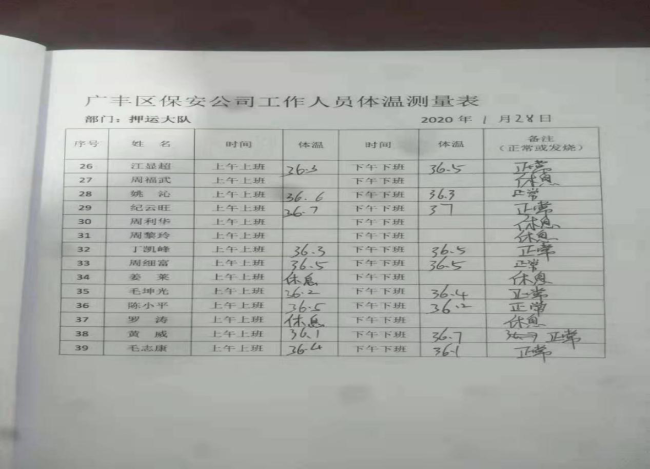 广丰区保安公司工作人员体温测量表
部门：押运大队 2020 年 1 月 28 日
序号 姓 名 时间 体温 时间 体温 备注（正常或发烧）
26 江显超 上午上班 36.5 下午下班 36.5 正常
27 周福武 上午上班 下午下班 休息
28 姚 沁 上午上班 36.6 下午下班 36.3 正常
29 纪云旺 上午上班 36.7 下午下班 37 正常
30 周利华 上午上班 下午下班 休息
31 周黎玲 上午上班 下午下班 休息
32 丁凯峰 上午上班 36.3 下午下班 36.5 正常
33 周细富 上午上班 36.5 下午下班 36.5 正常
34 姜 莱 上午上班 休息 下午下班 休息
35 毛坤光 上午上班 36.2 下午下班 36.4 正常
36 陈小平 上午上班 36.5 下午下班 36.2 正常
37 罗 涛 上午上班 休息 下午下班 休息
38 黄 威 上午上班 36.1 下午下班 36.7 正常
39 毛志康 上午上班 36.4 下午下班 36.1 正常